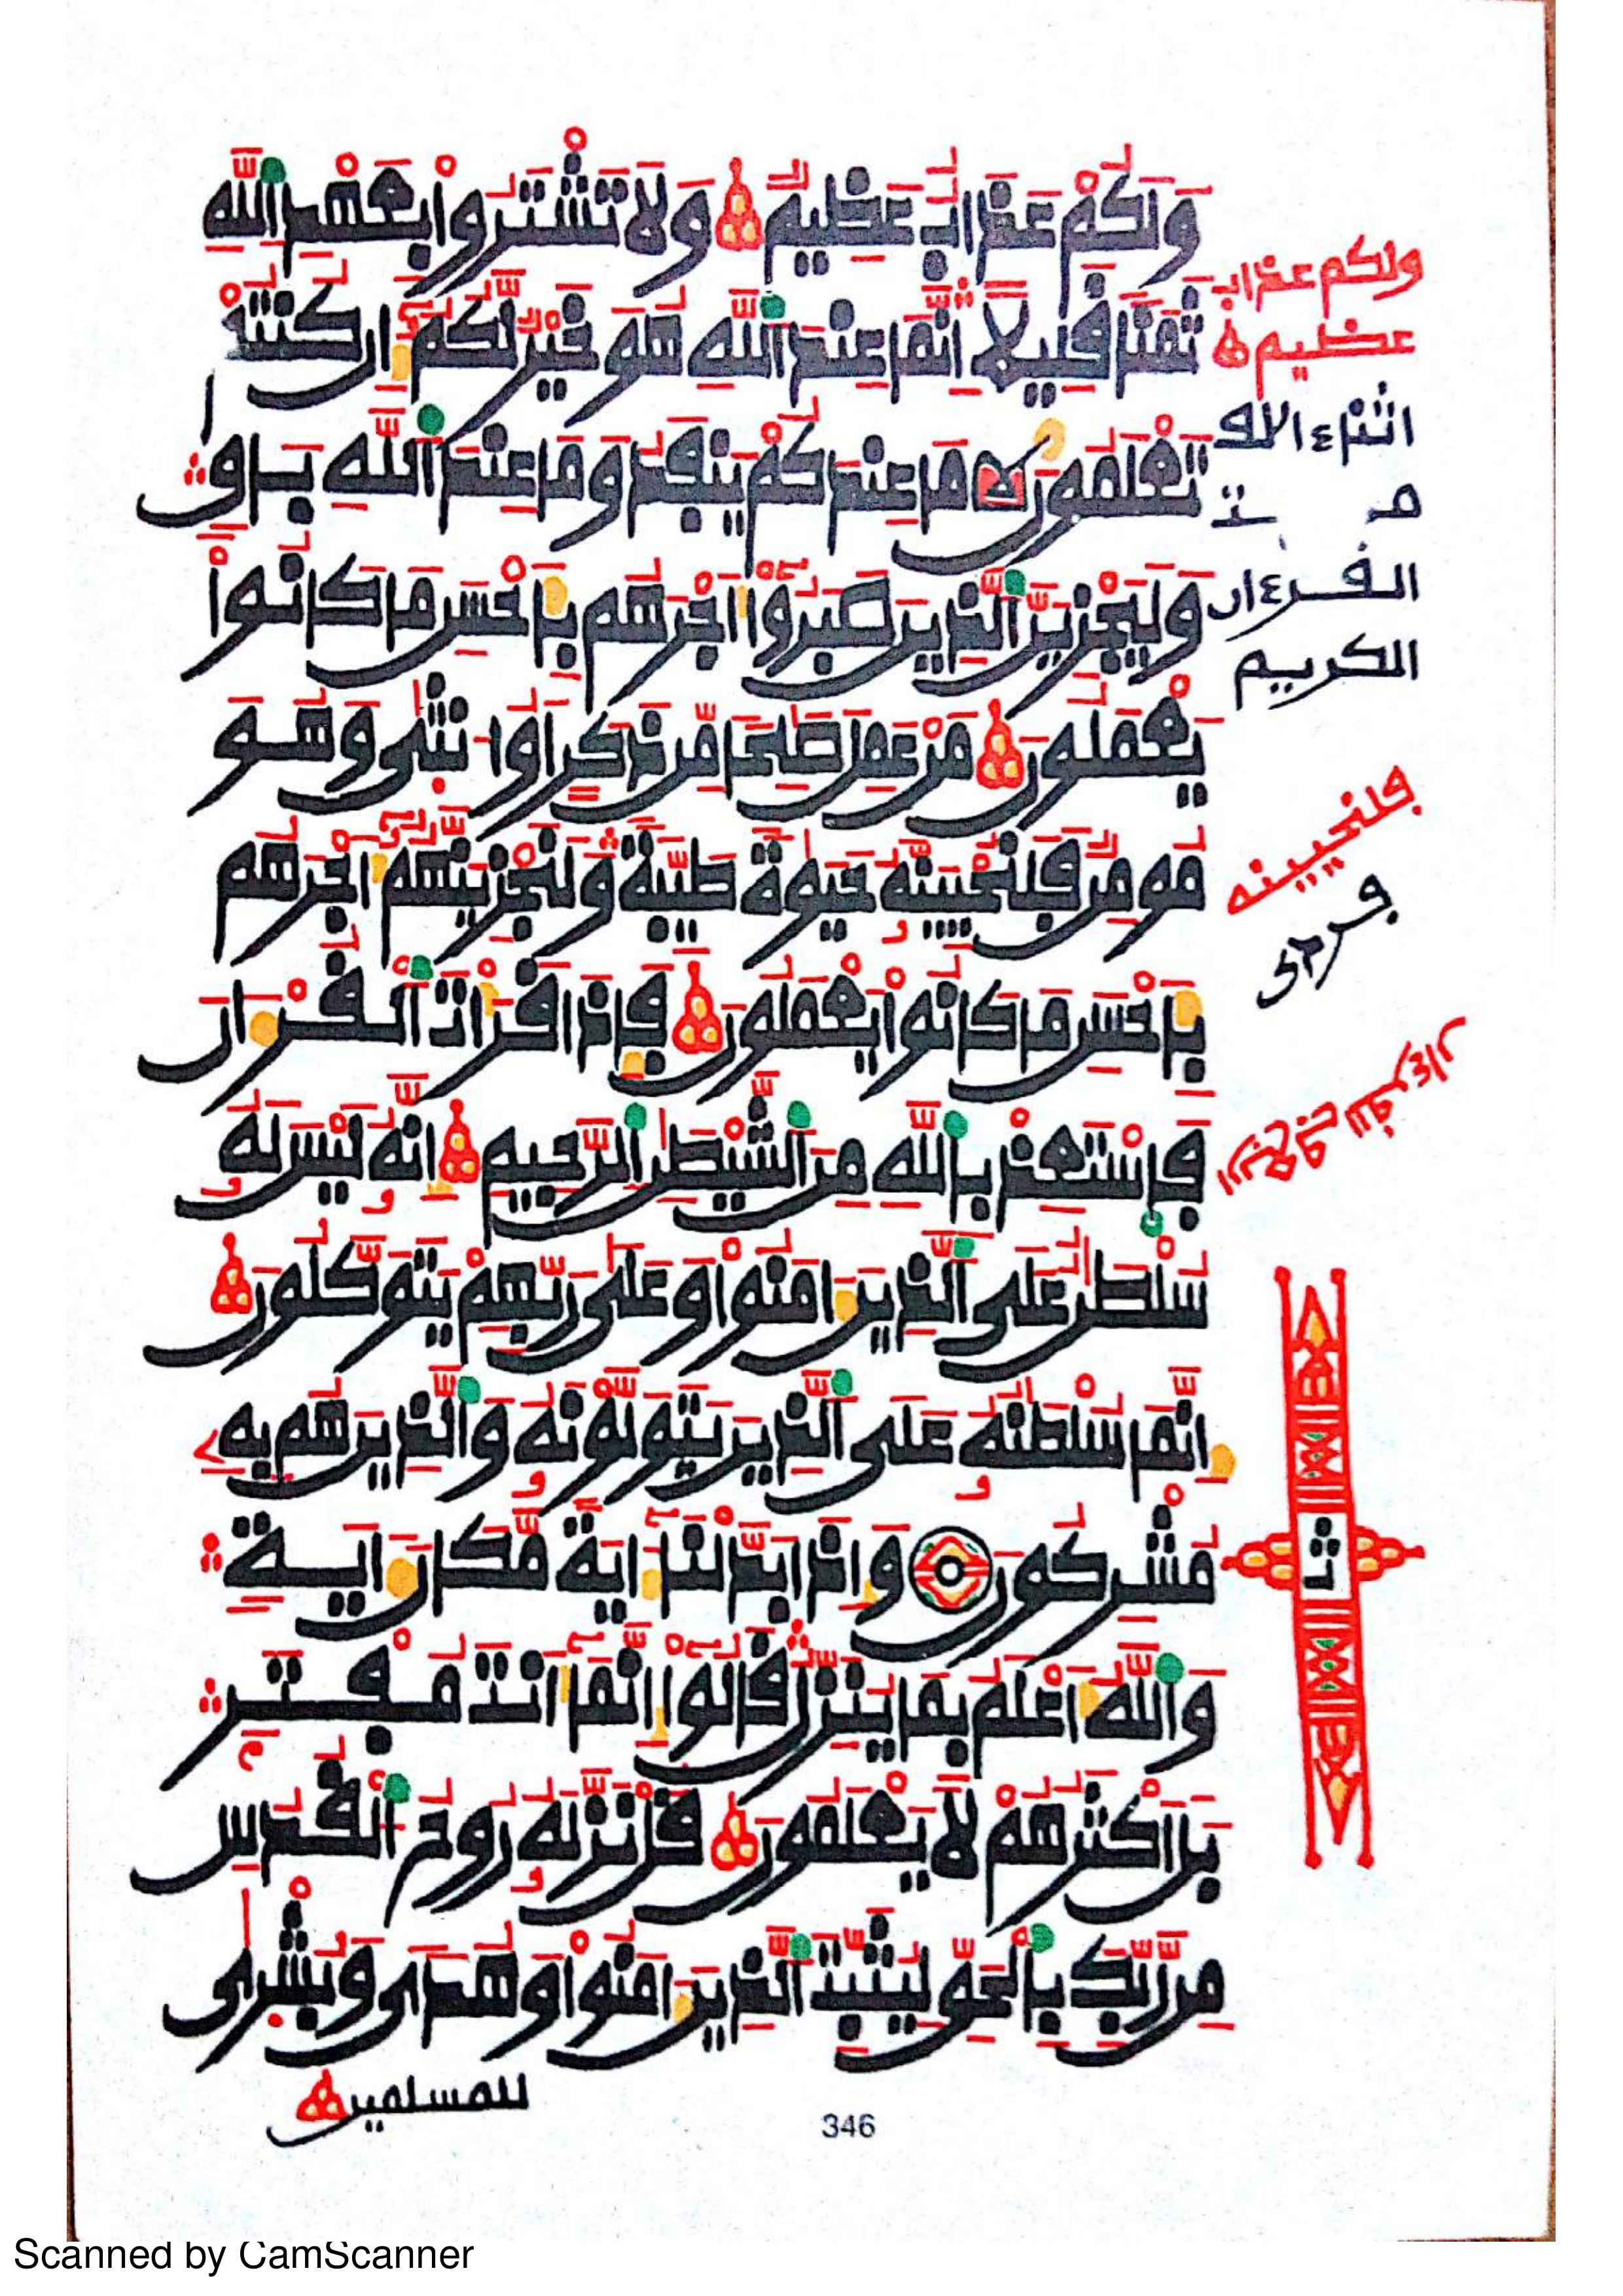 ولكم عذاب عظيم ولا تشتروا بعهد الله
ثمنا قليلا انما عند الله هو خير لكم ان كنتم
تعلمون ما عندكم ينفد وما عند الله باق
وليجزين الذين صبروا اجرهم باحسن ما كانوا
يعملون من عمل صلحا من ذكر او انثى وهو
مومن فلنحيينه حيوة طيبة ولنجزينهم اجرهم
باحسن ما كانوا يعملون فاذا قرات القران
فاستعذ بالله من الشيطن الرجيم انه ليس له
سلطن على الذين امنوا وعلى ربهم يتوكلون
انما سلطنه على الذين يتولونه والذين هم به
مشركون واذا بدلنا اية مكان اية
والله اعلم بما ينزل قالوا انما انت مفتر
بل اكثرهم لا يعلمون قل نزله روح القدس
من ربك بالحق ليثبت الذين امنوا وهدى وبشرى
للمسلمين
346
ولكم عذاب
عظيم
القرءان
الكريم
فلنحيينه
Scanned by CamScanner